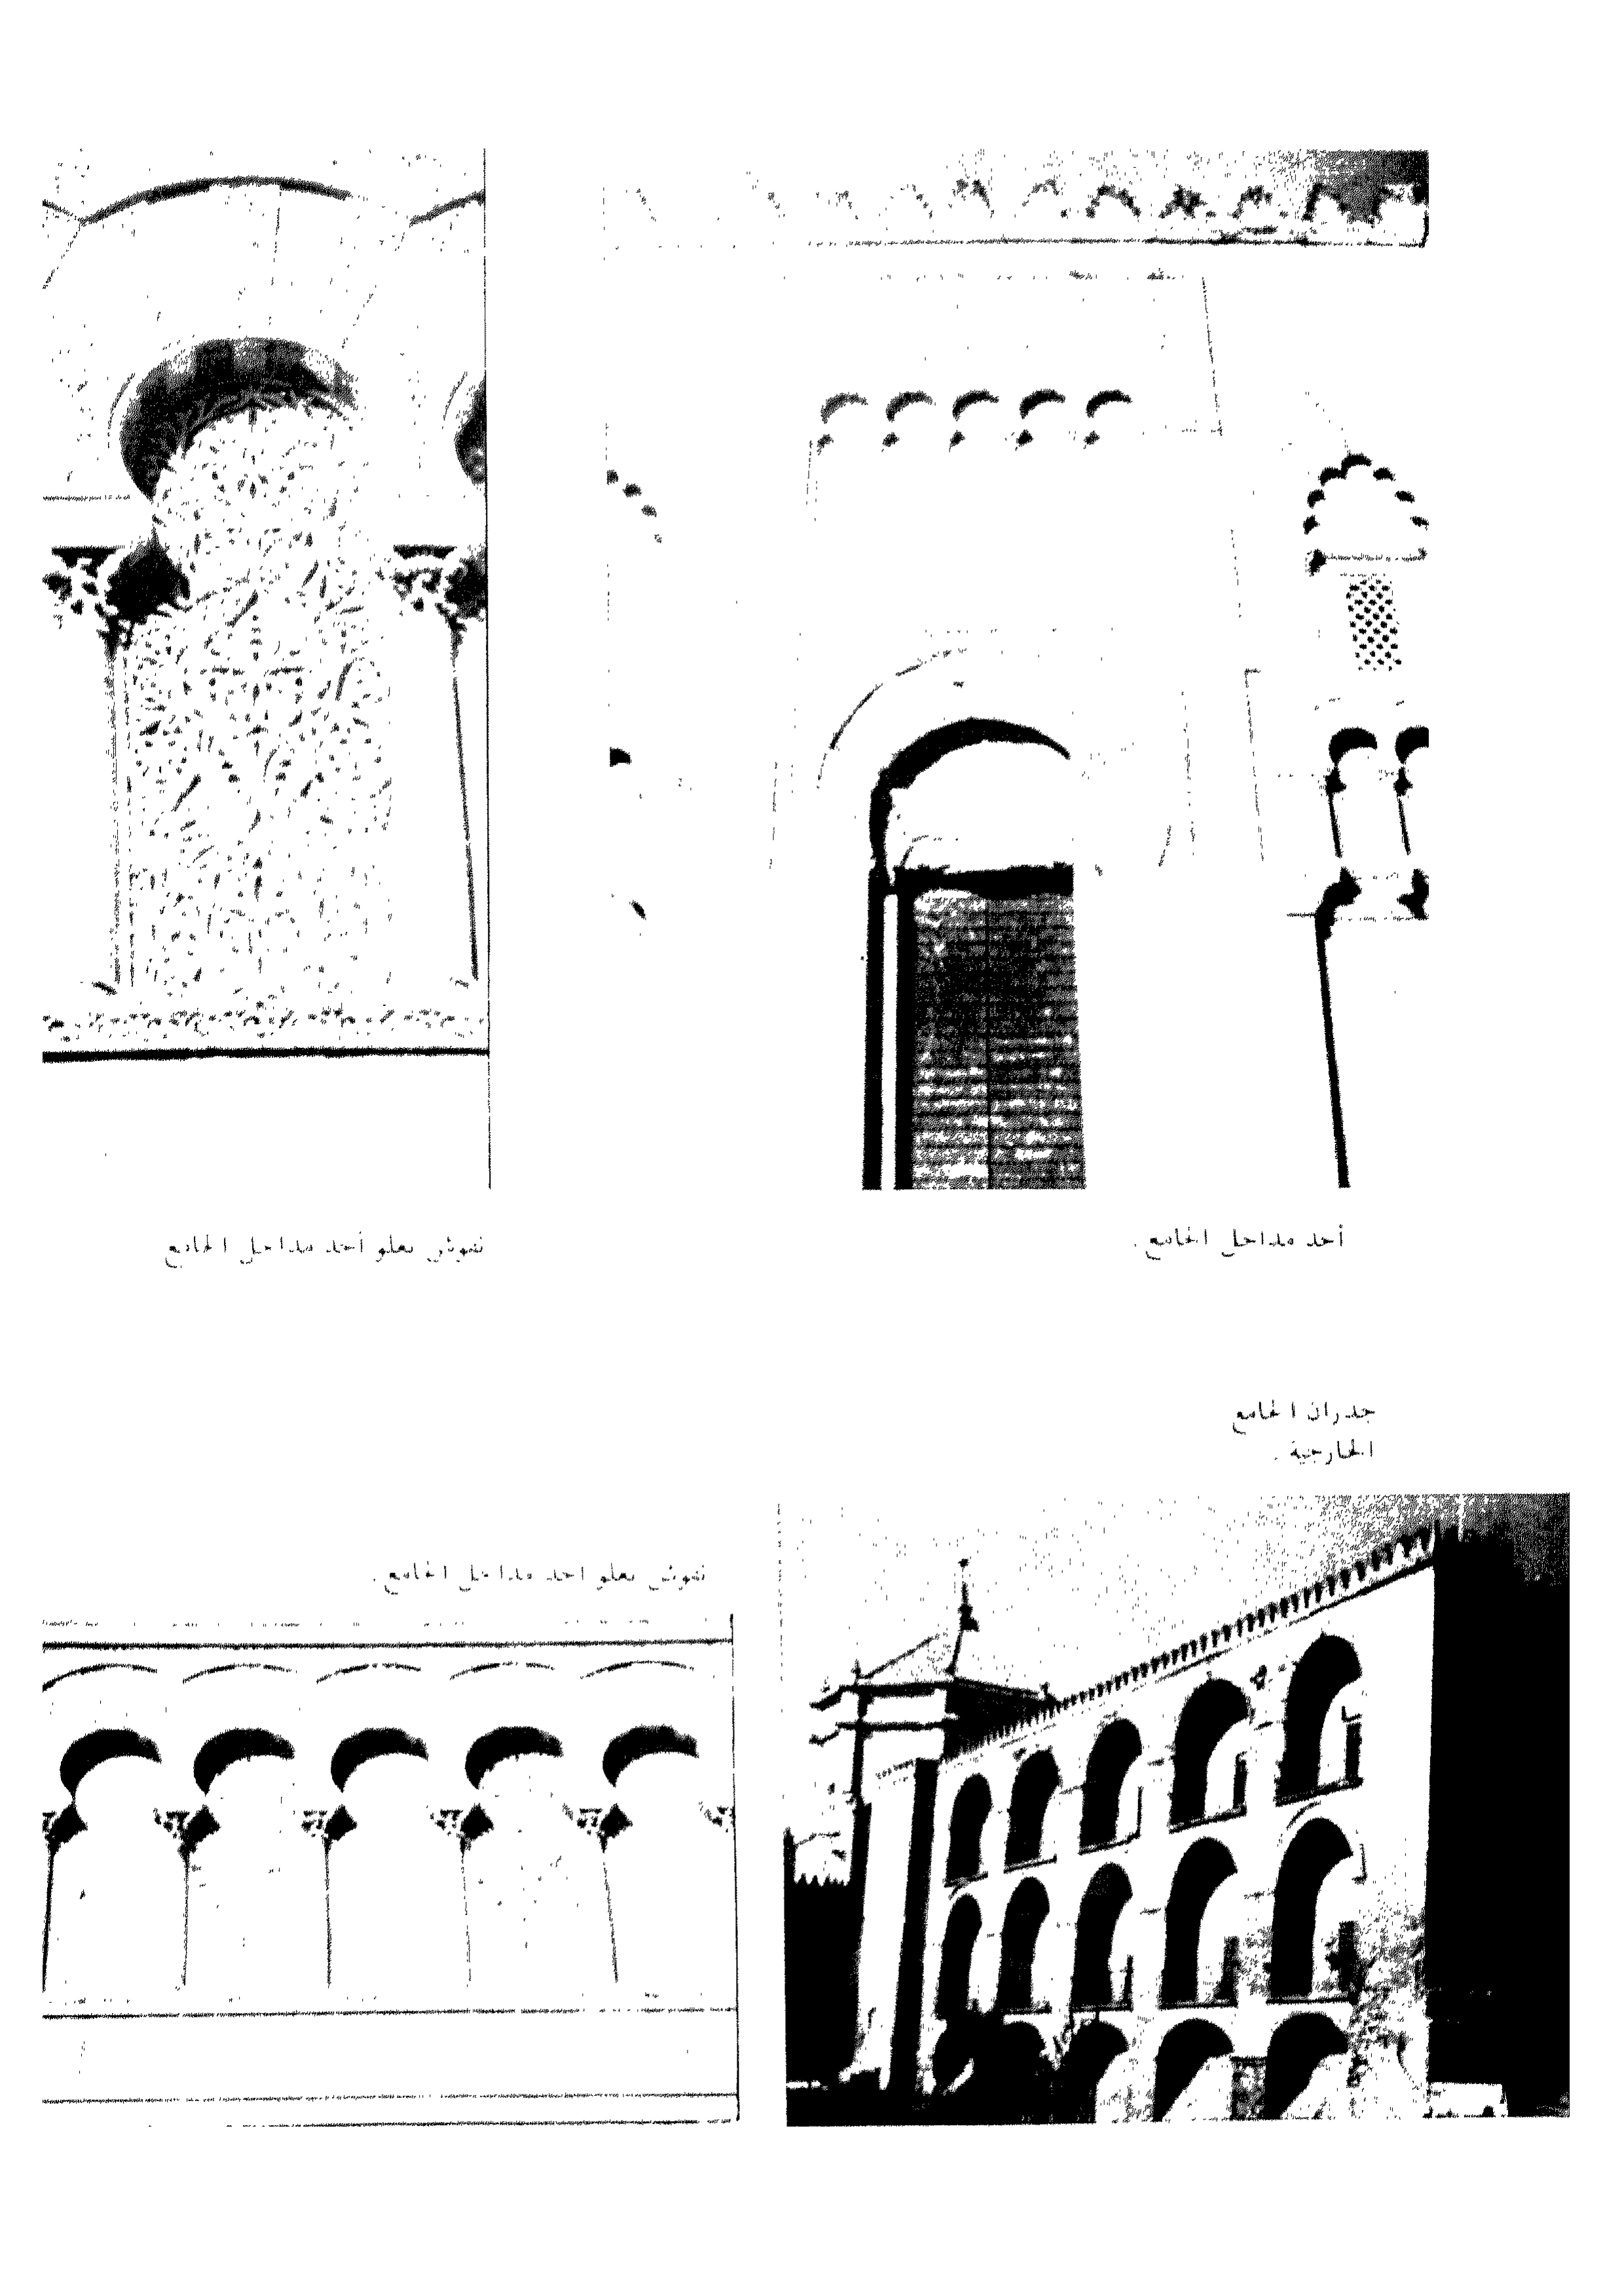 أحد مداخل الجامع .
نقوش تعلو أحد مداخل الجامع
جدران الجامع
الخارجية .
نقوش تعلو احد مداخل الجامع .